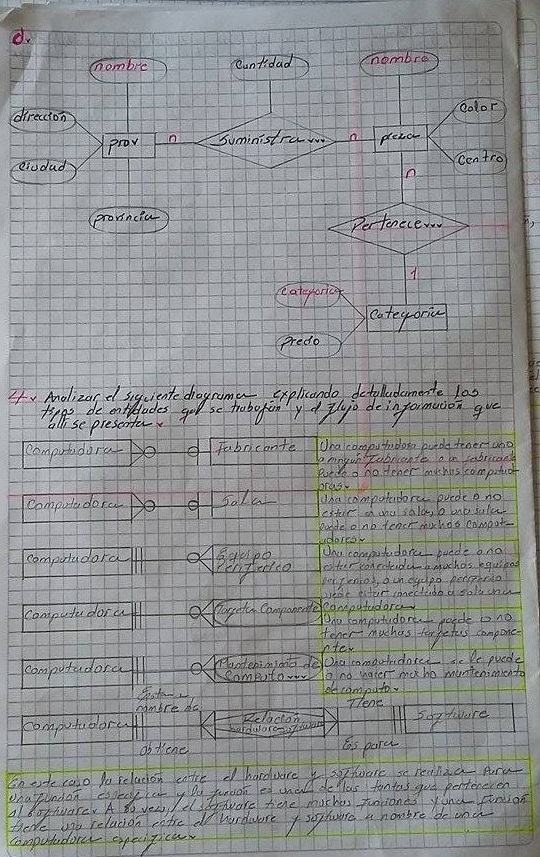 d.
nombre
Cantidad
nombre
dirección
Ciudad
prov
n
Suministra...
n
pieza
Color
Centro
provincia
n
Pertenece...
1
Categoria
precio
Categoria
4. Analizar el siguiente diagrama explicando detalladamente los
tipos de entidades que se trabajan y el flujo de información que
alli se presenta.
Computadora
Fabricante
Una computadora puede tener uno
o ningun fabricante o un fabricante
puede o no tener muchas computad-
oras.
Computadora
Sala
Una computadora puede o no
estar en una sala, o una sala
puede o no tener muchas comput-
adores.
Computadora
Equipo
Periferico
Una computadora puede o no
estar conectada a muchos equipos
perifericos, o un equipo periferico
puede estar conectado a sola una
computadora.
Computadora
Tarjeta Componente
Una computadora puede o no
tener muchas tarjetas compone-
nte.
Computadora
Mantenimiento de
Computo...
Una computadora se le puede
o no hacer mucho mantenimiento
de computo.
Computadora
nombre de
obtiene
Relación
hardware software
Tiene
Es para
Software
En este caso la relación entre el hardware y software se realiza para
una función especifica y la función es una de las tantas que pertenecen
al software. A su vez, el software tiene muchas funciones y una función
tiene una relación entre el hardware y software a nombre de una
computadora especifica.